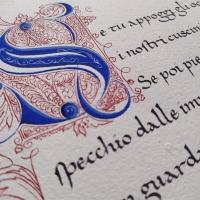 Se tu appoggi gli oc
i nostri cuscin
Se poi pie
Specchio dalle im
guarda